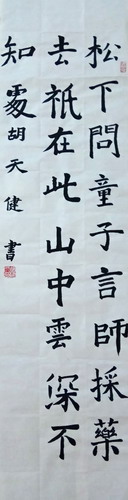 松下問童子言師採藥
去祇在此山中雲深不
知處胡天健書